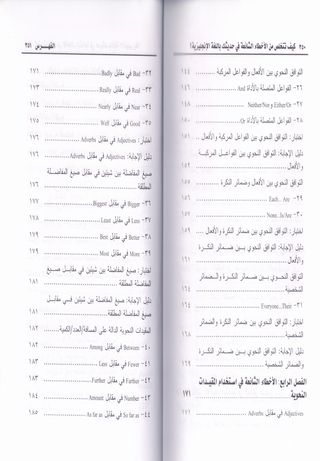 ٢٥٠ كيف تتخلص من الأخطاء الشائعة في حديثك باللغة الإنجليزية؟
التوافق النحوي بين الأفعال والفواعل المركبة ١٤٤
٢٧- الفواعل المتصلة بالأداة And ١٤٦
٢٨- Neither/Nor و Either/Or
٢٩- الفواعل المتصلة بالأداة Or ١٥٠
اختبار: التوافق النحوي بين الفواعل المركبة والأفعال ١٥١
دليل الإجابة: التوافق النحوي بين الفواعل المركبة
والأفعال ١٥٢
التوافق النحوي بين الأفعال وضمائر النكرة
٢٩- Each.. Are ١٥٦
٣٠- None..Is/Are ١٥٧
اختبار: التوافق النحوي بين ضمائر النكرة والأفعال
دليل الإجابة: التوافق النحوي بين ضمائر النكرة
والأفعال
التوافق النحوي بين ضمائر النكرة والضمائر
الشخصية
٣١- Everyone...Their ١٦٤
اختبار: التوافق النحوي بين ضمائر النكرة والضمائر
الشخصية
دليل الإجابة: التوافق النحوي بين ضمائر النكرة
والضمائر الشخصية ١٦٨
الفصل الرابع: الأخطاء الشائعة في استخدام المقيدات
النحوية ١٧١
Adjectives في مقابل Adverbs ١٧١
الفهرس ٢٥١
٣٢- Bad في مقابل Badly ١٧١
٣٣- Real في مقابل Really ١٧٣
٣٤- Near في مقابل Nearly ١٧٤
٣٥- Good في مقابل Well ١٧٥
اختبار: Adjectives في مقابل Adverbs ١٧٦
دليل الإجابة: Adjectives في مقابل Adverbs ١٧٦
صيغ المفاضلة بين شيئين في مقابل صيغ المفاضلة
المطلقة ١٧٦
٣٦- Bigger في مقابل Biggest ١٧٦
٣٧- Less في مقابل Least ١٧٨
٣٨- Better في مقابل Best ١٧٩
٣٩- More في مقابل Most ١٧٩
اختبار: صيغ المفاضلة بين شيئين في مقابل صيغ
المفاضلة المطلقة ١٨١
دليل الإجابة: صيغ المفاضلة بين شيئين في مقابل
صيغ المفاضلة المطلقة ١٨١
المقيدات النحوية الدالة على المسافة/العدد/الكمية ١٨٢
٤٠- Between في مقابل Among ١٨٢
٤١- Fewer في مقابل Less ١٨٣
٤٢- Farther في مقابل Further ١٨٣
٤٣- Number في مقابل Amount ١٨٤
٤٤- So far as في مقابل As far as ١٨٥